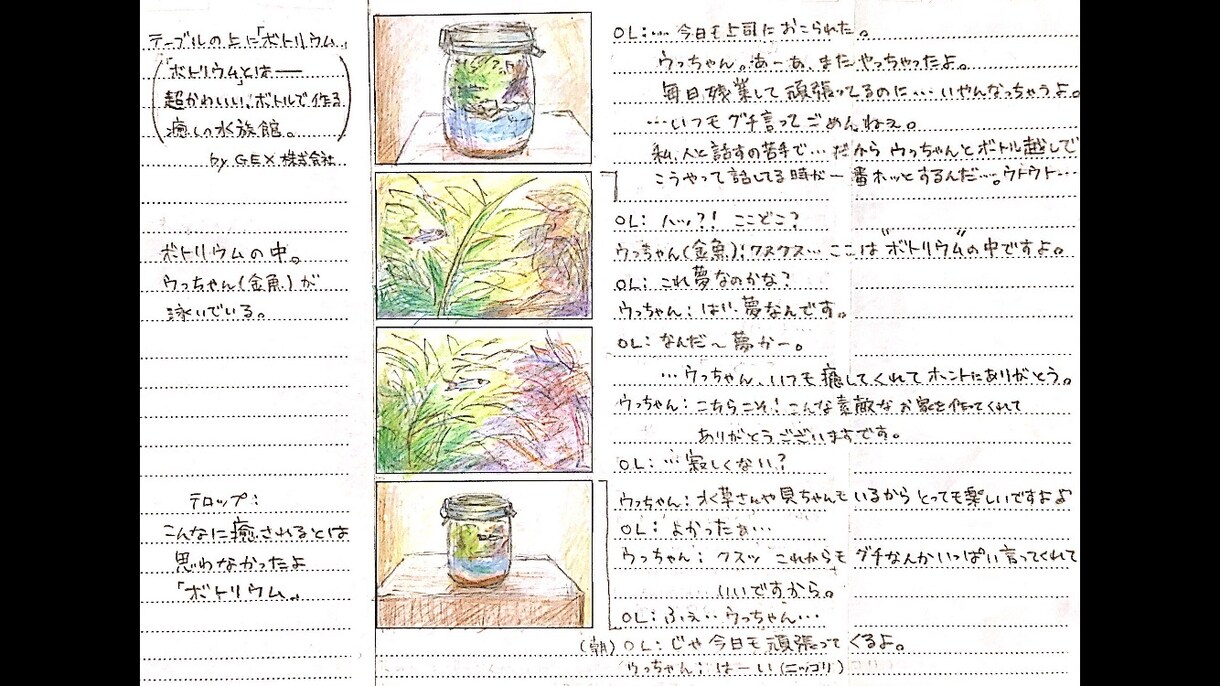 テーブルの上に「ボトリウム」
「ボトリウム」とは――
超かわいい、ボトルで作る
癒しの水族館。
by GEX 株式会社
ボトリウムの中。
ウっちゃん(金魚)が
泳いでいる。
テロップ:
こんなに癒されるとは
思わなかったよ
「ボトリウム」。
OL:…今日も上司におこられた。
ウっちゃん。あーあ、またやっちゃったよ。
毎日残業して頑張ってるのに…いやんなっちゃうよ。
…いつもグチ言ってごめんねぇ。
私、人と話すの苦手で…だからウっちゃんとボトル越しで
こうやって話してる時が一番ホッとするんだ…。ウトウト…
OL:ハッ?! ここどこ?
ウっちゃん(金魚):クスクス…ここは"ボトリウム"の中ですよ。
OL:これ夢なのかな?
ウっちゃん:はい、夢なんです。
OL:なんだ~夢かー。
…ウっちゃん、いつも癒してくれてホントにありがとう。
ウっちゃん:こちらこそ!こんな素敵なお家を作ってくれて
ありがとうございますです。
OL:…寂しくない?
ウっちゃん:水草さんや貝ちゃんもいるからとっても楽しいですよよ
OL:よかったぁ…
ウっちゃん:クスッ これからもグチなんかいっぱい言ってくれて
いいですから。
OL:ふぇ…ウっちゃん…
(朝) OL:じゃ今日も頑張ってくるよ。
ウっちゃん:はーい(ニッコリ)